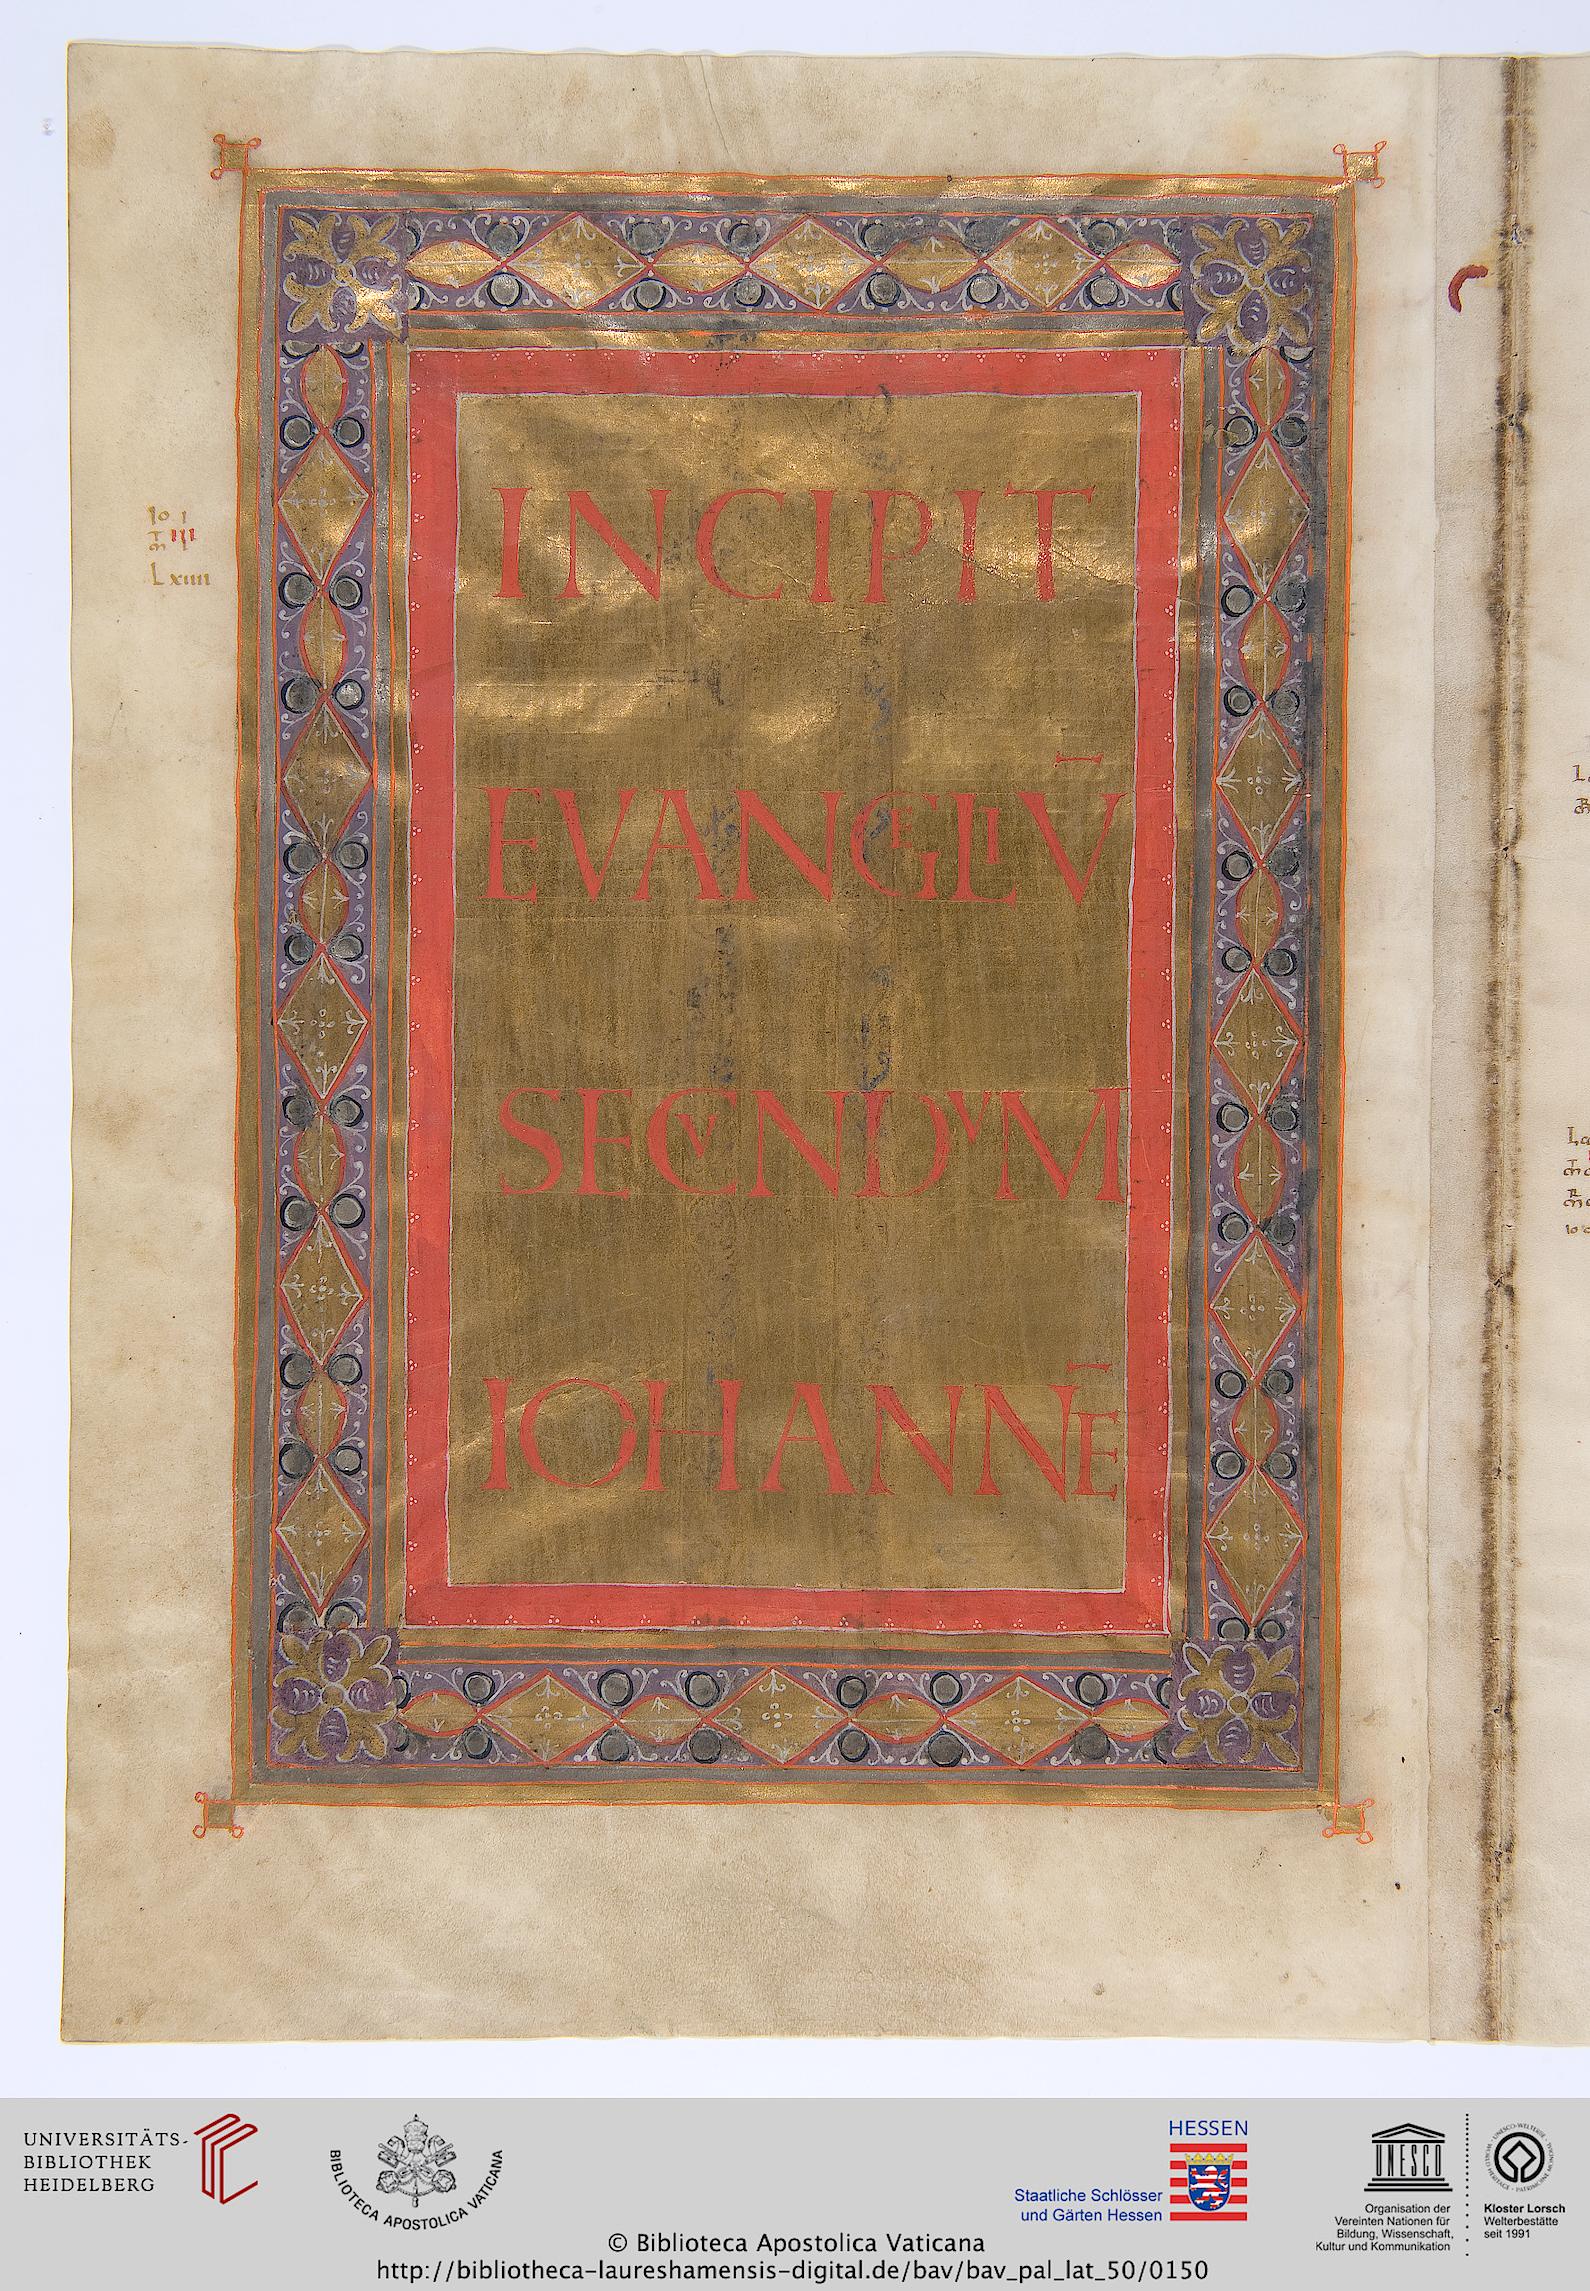 INCIPIT
EVANGELIV̄
SECVNDVM
IOHANNĒ
Io I
III
Lxiiii
UNIVERSITÄTS-
BIBLIOTHEK
HEIDELBERG
BIBLIOTECA APOSTOLICA VATICANA
HESSEN
Staatliche Schlösser
und Gärten Hessen
UNESCO
Organisation der
Vereinten Nationen für
Bildung, Wissenschaft,
Kultur und Kommunikation
Kloster Lorsch
Welterbestätte
seit 1991
© Biblioteca Apostolica Vaticana
http://bibliotheca-laureshamensis-digital.de/bav/bav_pal_lat_50/0150